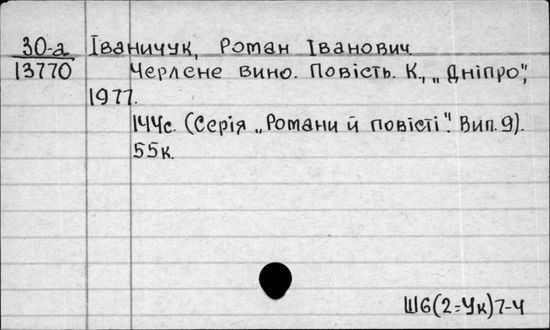 30-а Іваничук, Роман Іванович.
13770 Черлене вино. Повість. К., „Дніпро",
1977.
144с. (Серія „Романи й повісті". Вип. 9).
55к.
Ш6(2=Ук)7-4